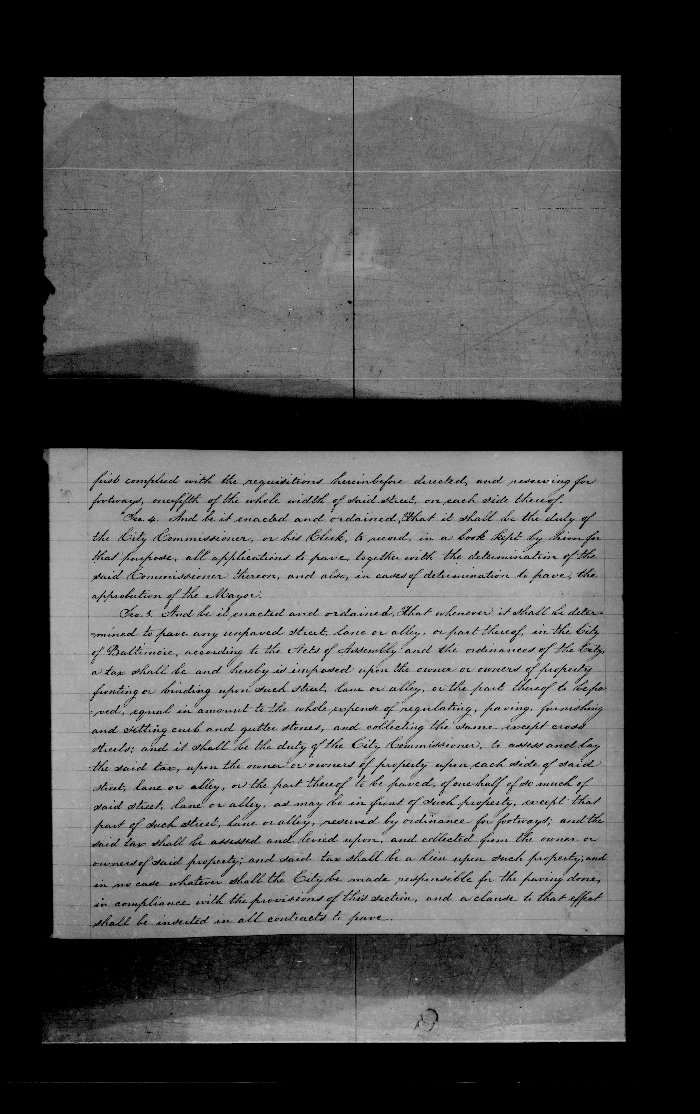 first complied with the requisitions hereinbefore directed, and reserving for
footways, one fifth of the whole width of said street, on each side thereof.
Sec. 4. And be it enacted and ordained, That it shall be the duty of
the City Commissioner, or his Clerk, to record, in a book kept by him for
that purpose, all applications to pave, together with the determination of the
said Commissioner thereon, and also, in cases of determination to pave, the
approbation of the Mayor.
Sec. 5. And be it enacted and ordained, That whenever it shall be deter-
-mined to pave any unpaved street, lane or alley, or part thereof, in the City
of Baltimore, according to the Acts of Assembly and the ordinances of the City,
a tax shall be and hereby is imposed upon the owner or owners of property
fronting or binding upon such street, lane or alley, or the part thereof to be pa-
-ved, equal in amount to the whole expense of regulating, paving, furnishing
and setting curb and gutter stones, and collecting the same except cross
streets; and it shall be the duty of the City Commissioner, to assess and lay
the said tax, upon the owner or owners of property upon each side of said
street, lane or alley, or the part thereof to be paved, of one half of so much of
said street, lane or alley, as may be in front of such property, except that
part of such street, lane or alley, reserved by ordinance for footways; and the
said tax shall be assessed and levied upon, and collected from the owner or
owners of said property; and said tax shall be a lien upon such property; and
in no case whatever shall the City be made responsible for the paving done,
in compliance with the provisions of this section, and a clause to that effect
shall be inserted in all contracts to pave.